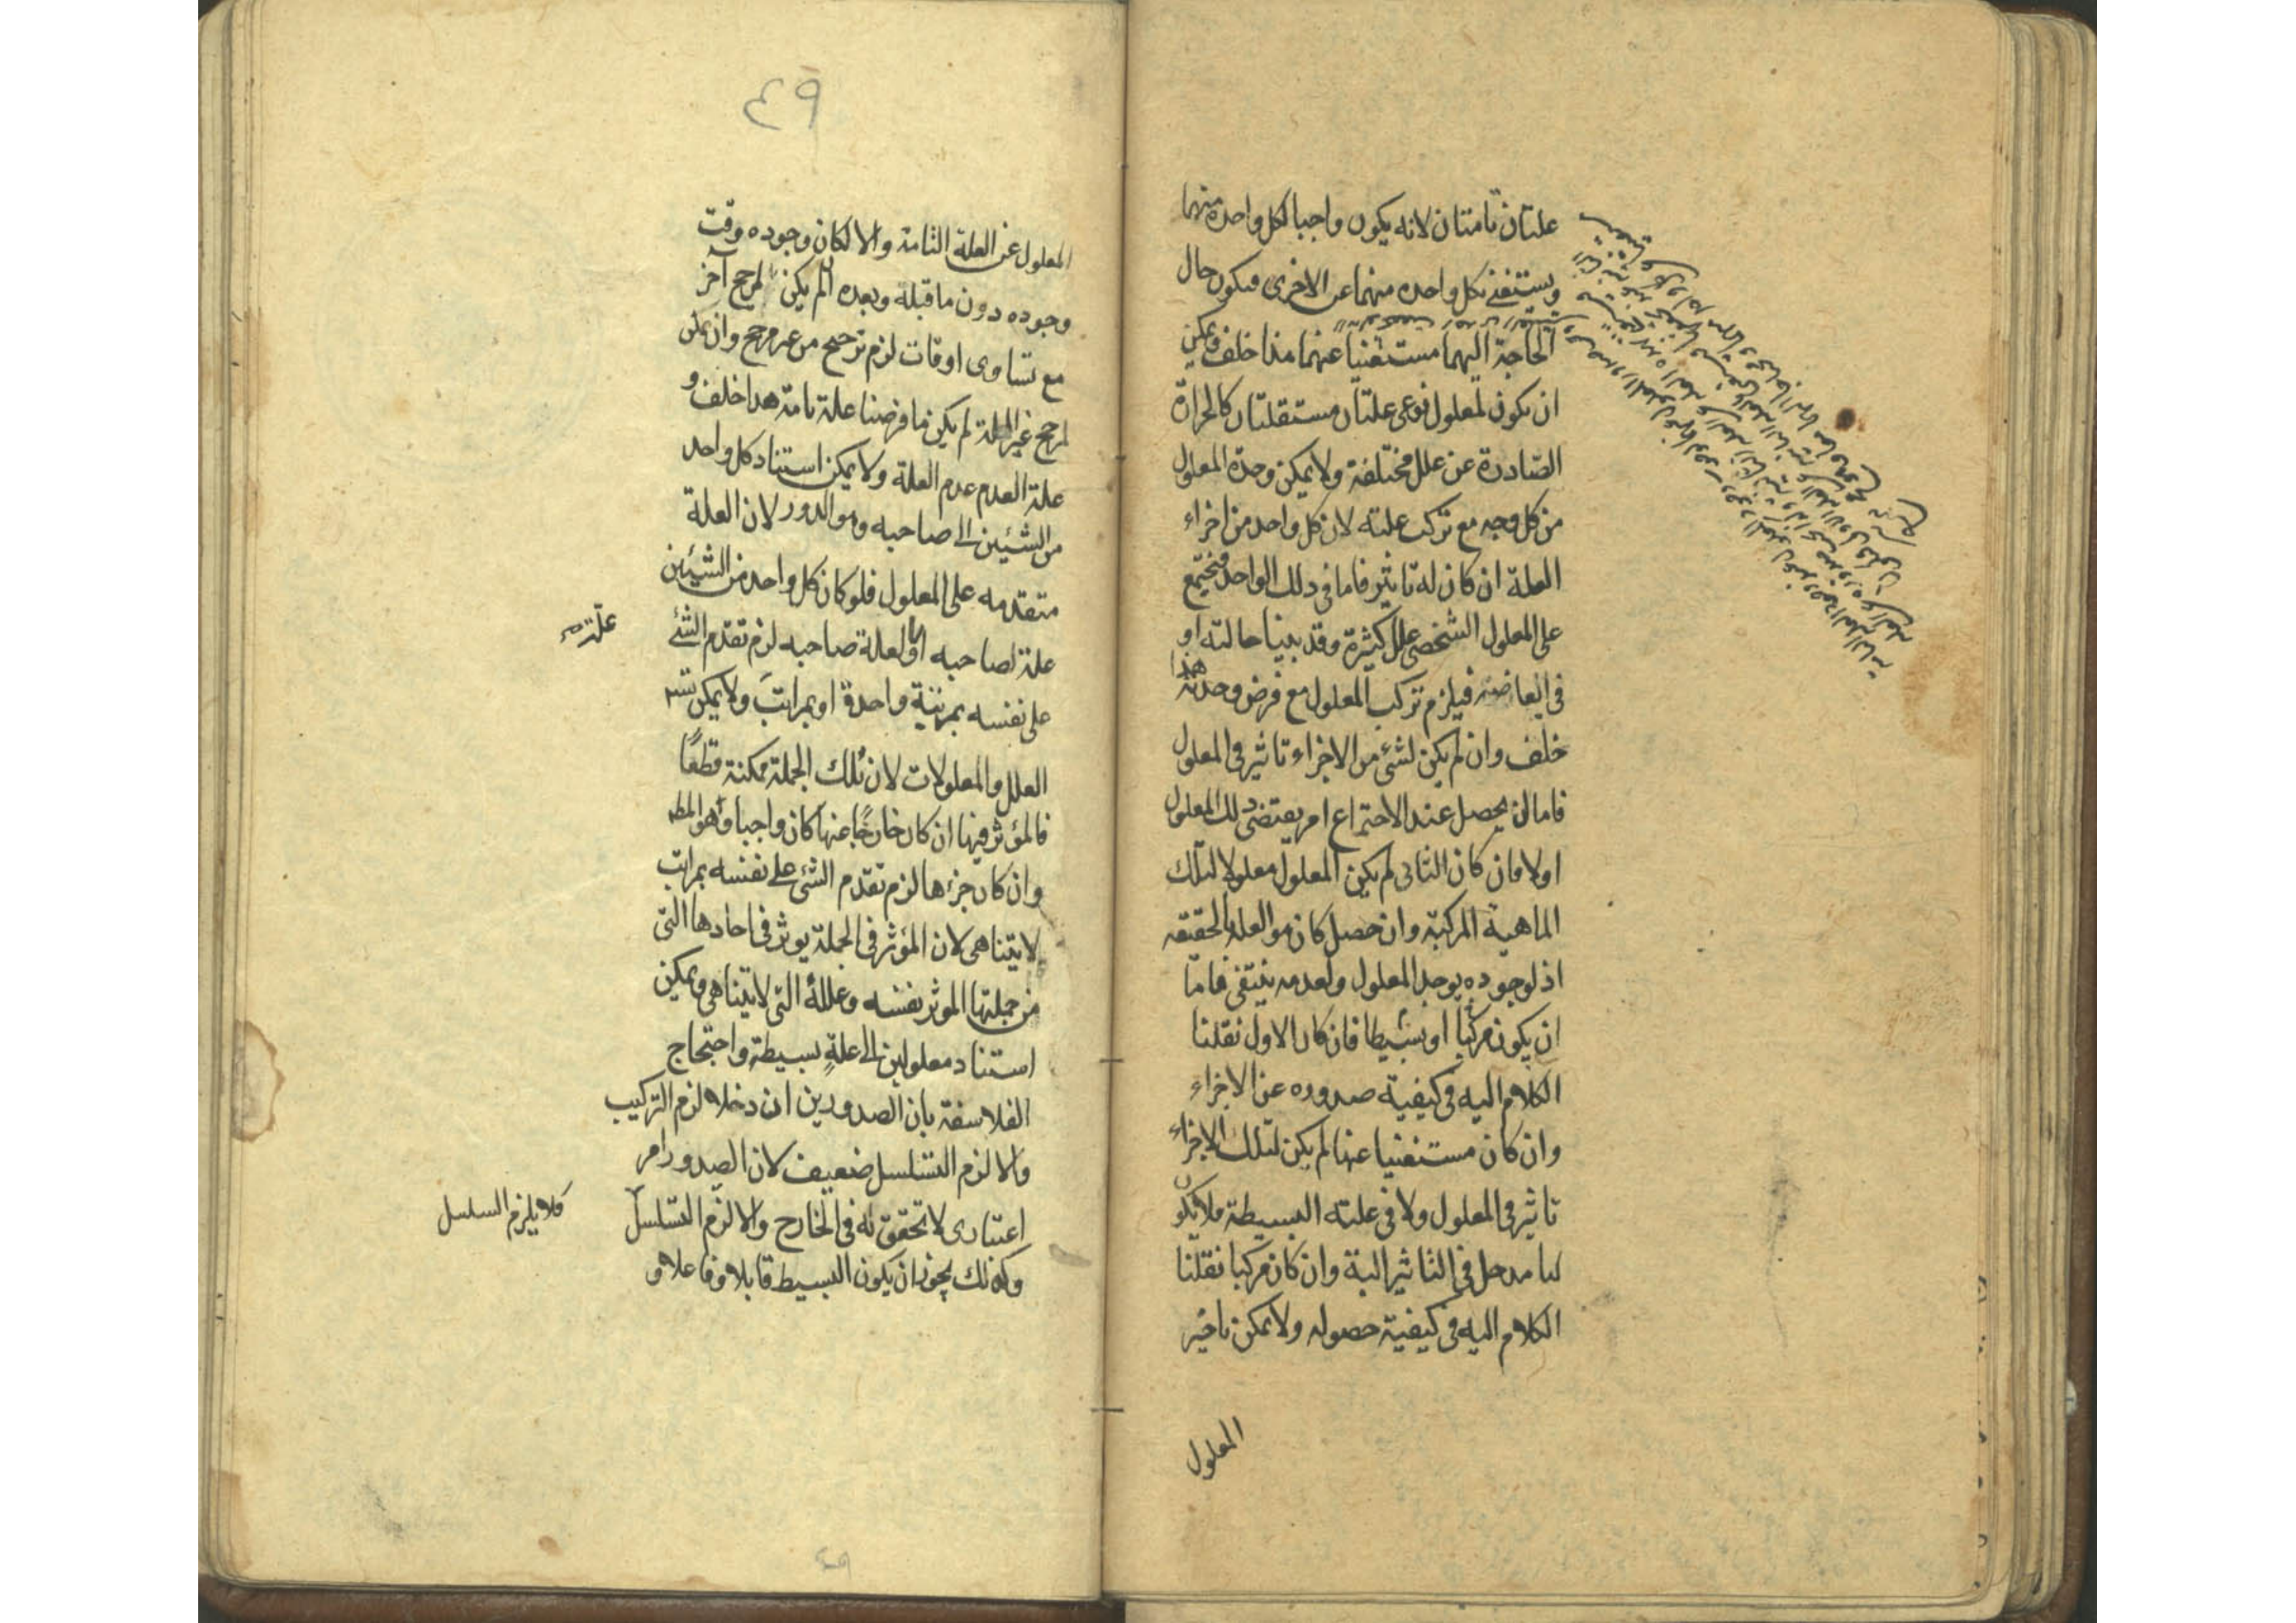 علتان تامتان لانه يكون واجبا لكل واحدة منهما
ويستغنى بكل واحده منهما عن الاخرى فيكون حال
الحاجة اليهما مستغنيا عنهما هذا خلف ويمكن
ان يكون لمعلول نوعى علتان مستقلتان كالحرارة
الصادرة عن علل مختلفة ولا يمكن وحدة المعلول
من كل وجه مع تركب علته لان كل واحد من اجزاء
العلة ان كان له تاثير فاما فى ذلك الواحد فيجتمع
على المعلول الشخصى علل كثيرة وقد بينا حالته او
فى ابعاضه فيلزم تركب المعلول مع فرض وحدته هذا
خلف وان لم يكن لشئ من الاجزاء تاثير فى المعلول
فاما ان يحصل عند الاجتماع امر يقتضى ذلك المعلول
اولا فان كان الثانى لم يكن المعلول معلولا لتلك
الماهية المركبة وان حصل كان هو العلة بالحقيقه
اذ لوجوده يوجد المعلول ولعدمه ينتفى فاما
ان يكون مركبا او بسيطا فان كان الاول نقلنا
الكلام اليه فى كيفية صدوره عن الاجزاء
وان كان مستغنيا عنها لم يكن لتلك الاجزاء
تاثير فى المعلول ولا فى علته البسيطة فلا يكون
لها مدخل فى التاثير البتة وان كان مركبا نقلنا
الكلام اليه فى كيفية حصوله ولا يمكن تاخير
المعلول
٤٩
المعلول عن العلة التامة والا لكان وجوده وقت
وجوده دون ما قبله وبعده ان لم يكن لمرجح آخر
مع تساوى اوقات لزم ترجيح من غير مرجح وان يكن
لمرجح غير العلة لم يكن ما فرضنا علة تامة هذا خلف و
علة العدم عدم العلة ولا يمكن استناد كل واحد
من الشيئين الى صاحبه وهو الدور لان العلة
متقدمه على المعلول فلو كان كل واحد من الشيئين
علة لصاحبه او لعلة صاحبه لزم تقدم الشئ
علته
على نفسه بمرتبة واحدة او بمراتب ولا يمكن تسه
العلل والمعلولات لان تلك الجملة ممكنة قطعًا
فالمؤثر فيها ان كان خارجًا عنها كان واجبا وهو المطه
وان كان جزءها لزم تقدم الشئ على نفسه بمراتب
لا يتناهى لان المؤثر فى الجملة يوثر فى احادها التى
من جملتها الموثر نفسه وعلله التى لا يتناهى ويمكن
استناد معلولين الى علةٍ بسيطة واحتجاج
الفلاسفة بان الصدورين ان دخلا لزم التركيب
والا لزم التسلسل ضعيف لان الصدور امر
اعتبارى لا تحقق له فى الخارج والا لزم التسلسل
فلا يلزم السلسل
وكذلك يجوز ان يكون البسيط قابلا وفاعلا و
٤٩